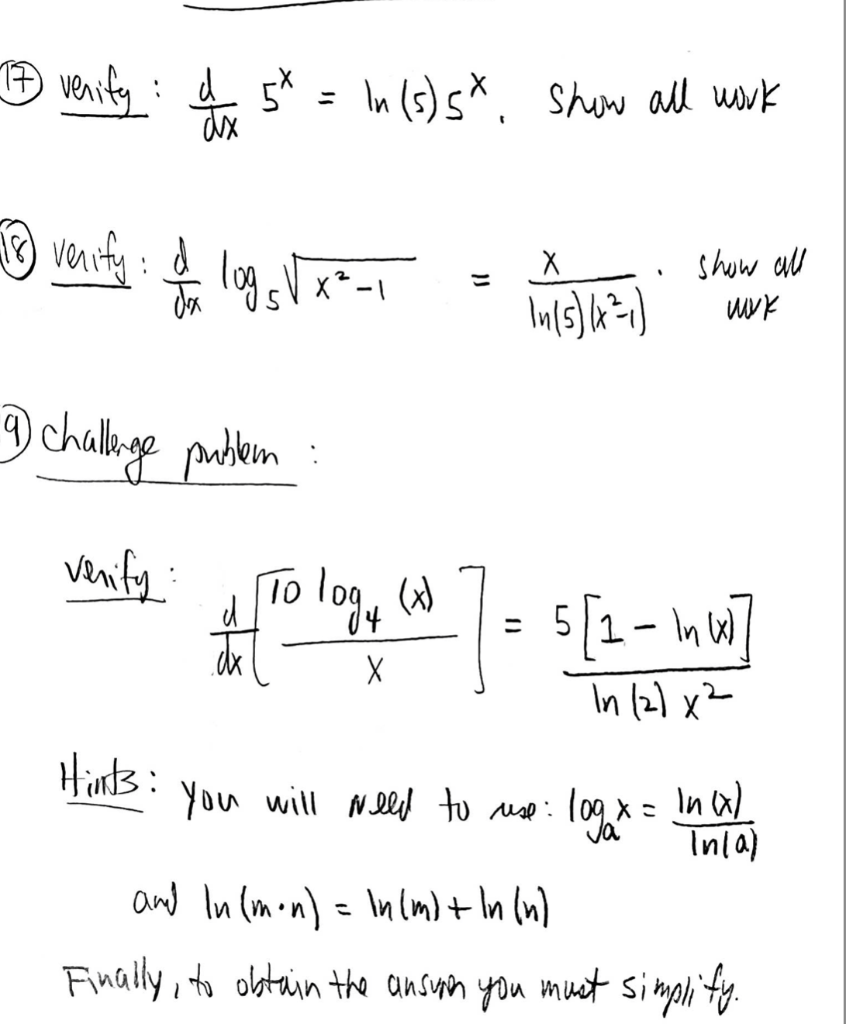 17 verify : d/dx 5^x = ln(5) 5^x. Show all work
18 verify : d/dx log_5 √(x²-1) = x / (ln(5)(x²-1)) . show all
work
9 challenge problem :
verify : d/dx [10 log_4 (x) / x] = 5[1 - ln(x)] / (ln(2) x²)
Hints : you will need to use : log_a x = ln(x) / ln(a)
and ln(m·n) = ln(m) + ln(n)
Finally, to obtain the answer you must simplify.